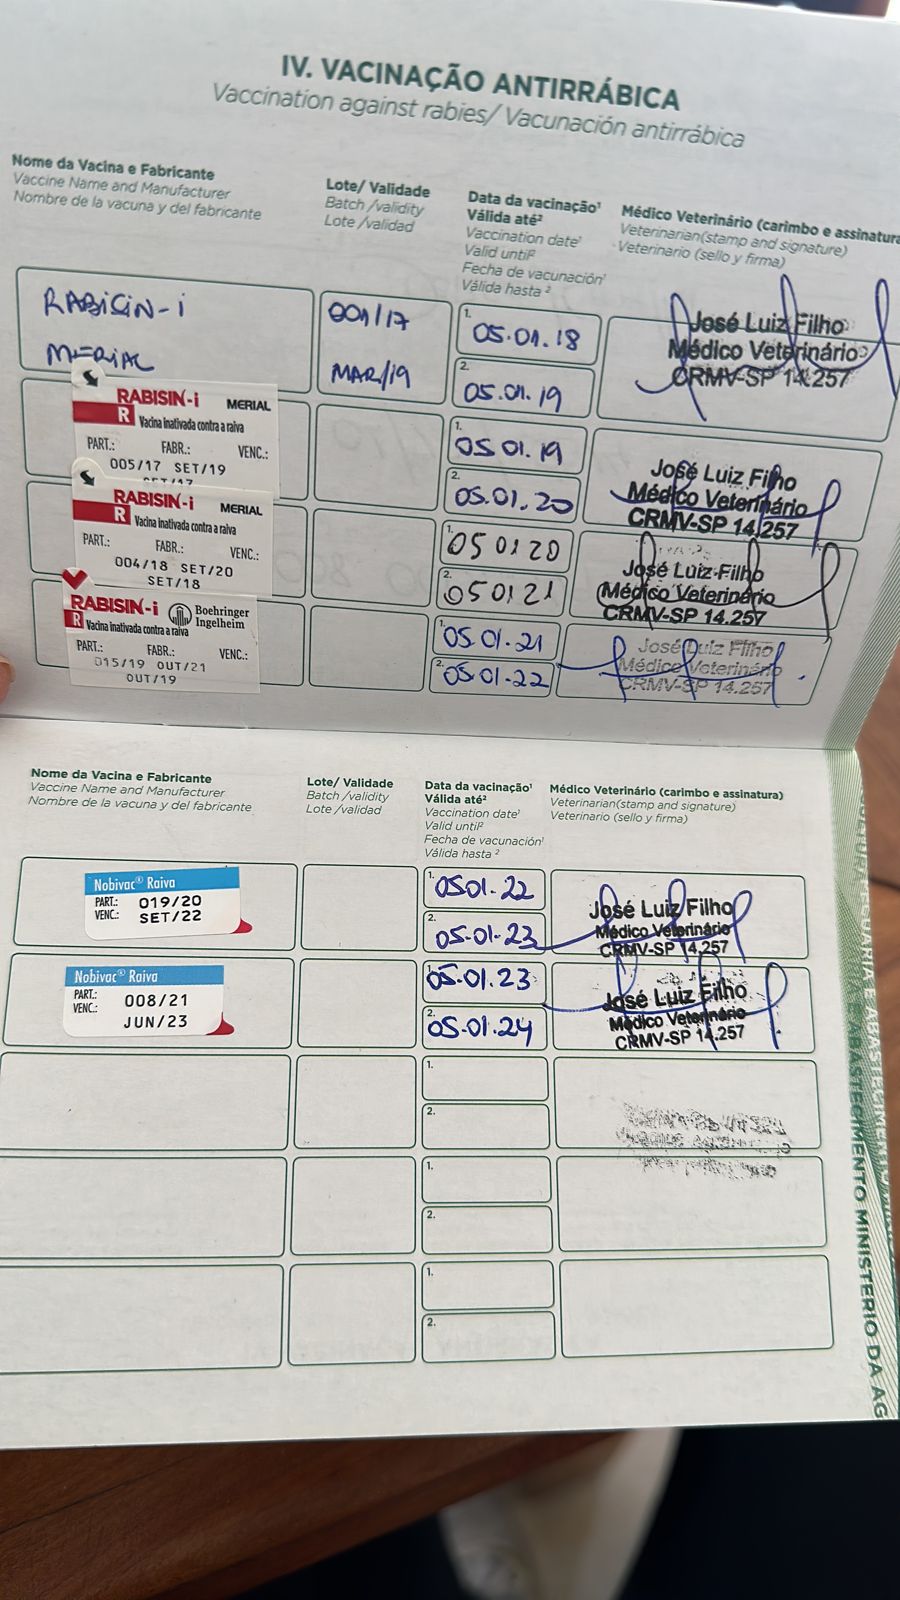 IV. VACINAÇÃO ANTIRRÁBICA
Vaccination against rabies/ Vacunación antirrábica
Nome da Vacina e Fabricante
Vaccine Name and Manufacturer
Nombre de la vacuna y del fabricante
Lote/ Validade
Batch /validity
Lote /validad
Data da vacinação¹
Válida até²
Vaccination date¹
Valid until²
Fecha de vacunación¹
Válida hasta ²
Médico Veterinário (carimbo e assinatura
Veterinarian(stamp and signature)
Veterinario (sello y firma)
RABISIN-i
MERIAL
001/17
MAR/19
1.
05.01.18
2.
05.01.19
José Luiz Filho
Médico Veterinário
CRMV-SP 14.257
RABISIN-i MERIAL
R Vacina inativada contra a raiva
PART.: FABR.: VENC.:
005/17 SET/19
SET/17
1.
05.01.19
2.
05.01.20
José Luiz Filho
Médico Veterinário
CRMV-SP 14.257
RABISIN-i MERIAL
R Vacina inativada contra a raiva
PART.: FABR.: VENC.:
004/18 SET/20
SET/18
1.
05 01 20
2.
05 01 21
José Luiz Filho
Médico Veterinário
CRMV-SP 14.257
RABISIN-i Boehringer
Ingelheim
R Vacina inativada contra a raiva
PART.: FABR.: VENC.:
015/19 OUT/21
OUT/19
1.
05.01.21
2.
05.01.22
José Luiz Filho
Médico Veterinário
CRMV-SP 14.257
Nome da Vacina e Fabricante
Vaccine Name and Manufacturer
Nombre de la vacuna y del fabricante
Lote/ Validade
Batch /validity
Lote /validad
Data da vacinação¹
Válida até²
Vaccination date¹
Valid until²
Fecha de vacunación¹
Válida hasta ²
Médico Veterinário (carimbo e assinatura)
Veterinarian(stamp and signature)
Veterinario (sello y firma)
Nobivac® Raiva
PART.: 019/20
VENC.: SET/22
1.
05.01.22
2.
05.01.23
José Luiz Filho
Médico Veterinário
CRMV-SP 14.257
Nobivac® Raiva
PART.: 008/21
VENC.: JUN/23
1.
05.01.23
2.
05.01.24
José Luiz Filho
Médico Veterinário
CRMV-SP 14.257
1.
2.
1.
2.
1.
2.
ABASTECIMENTO MINISTERIO DA AG